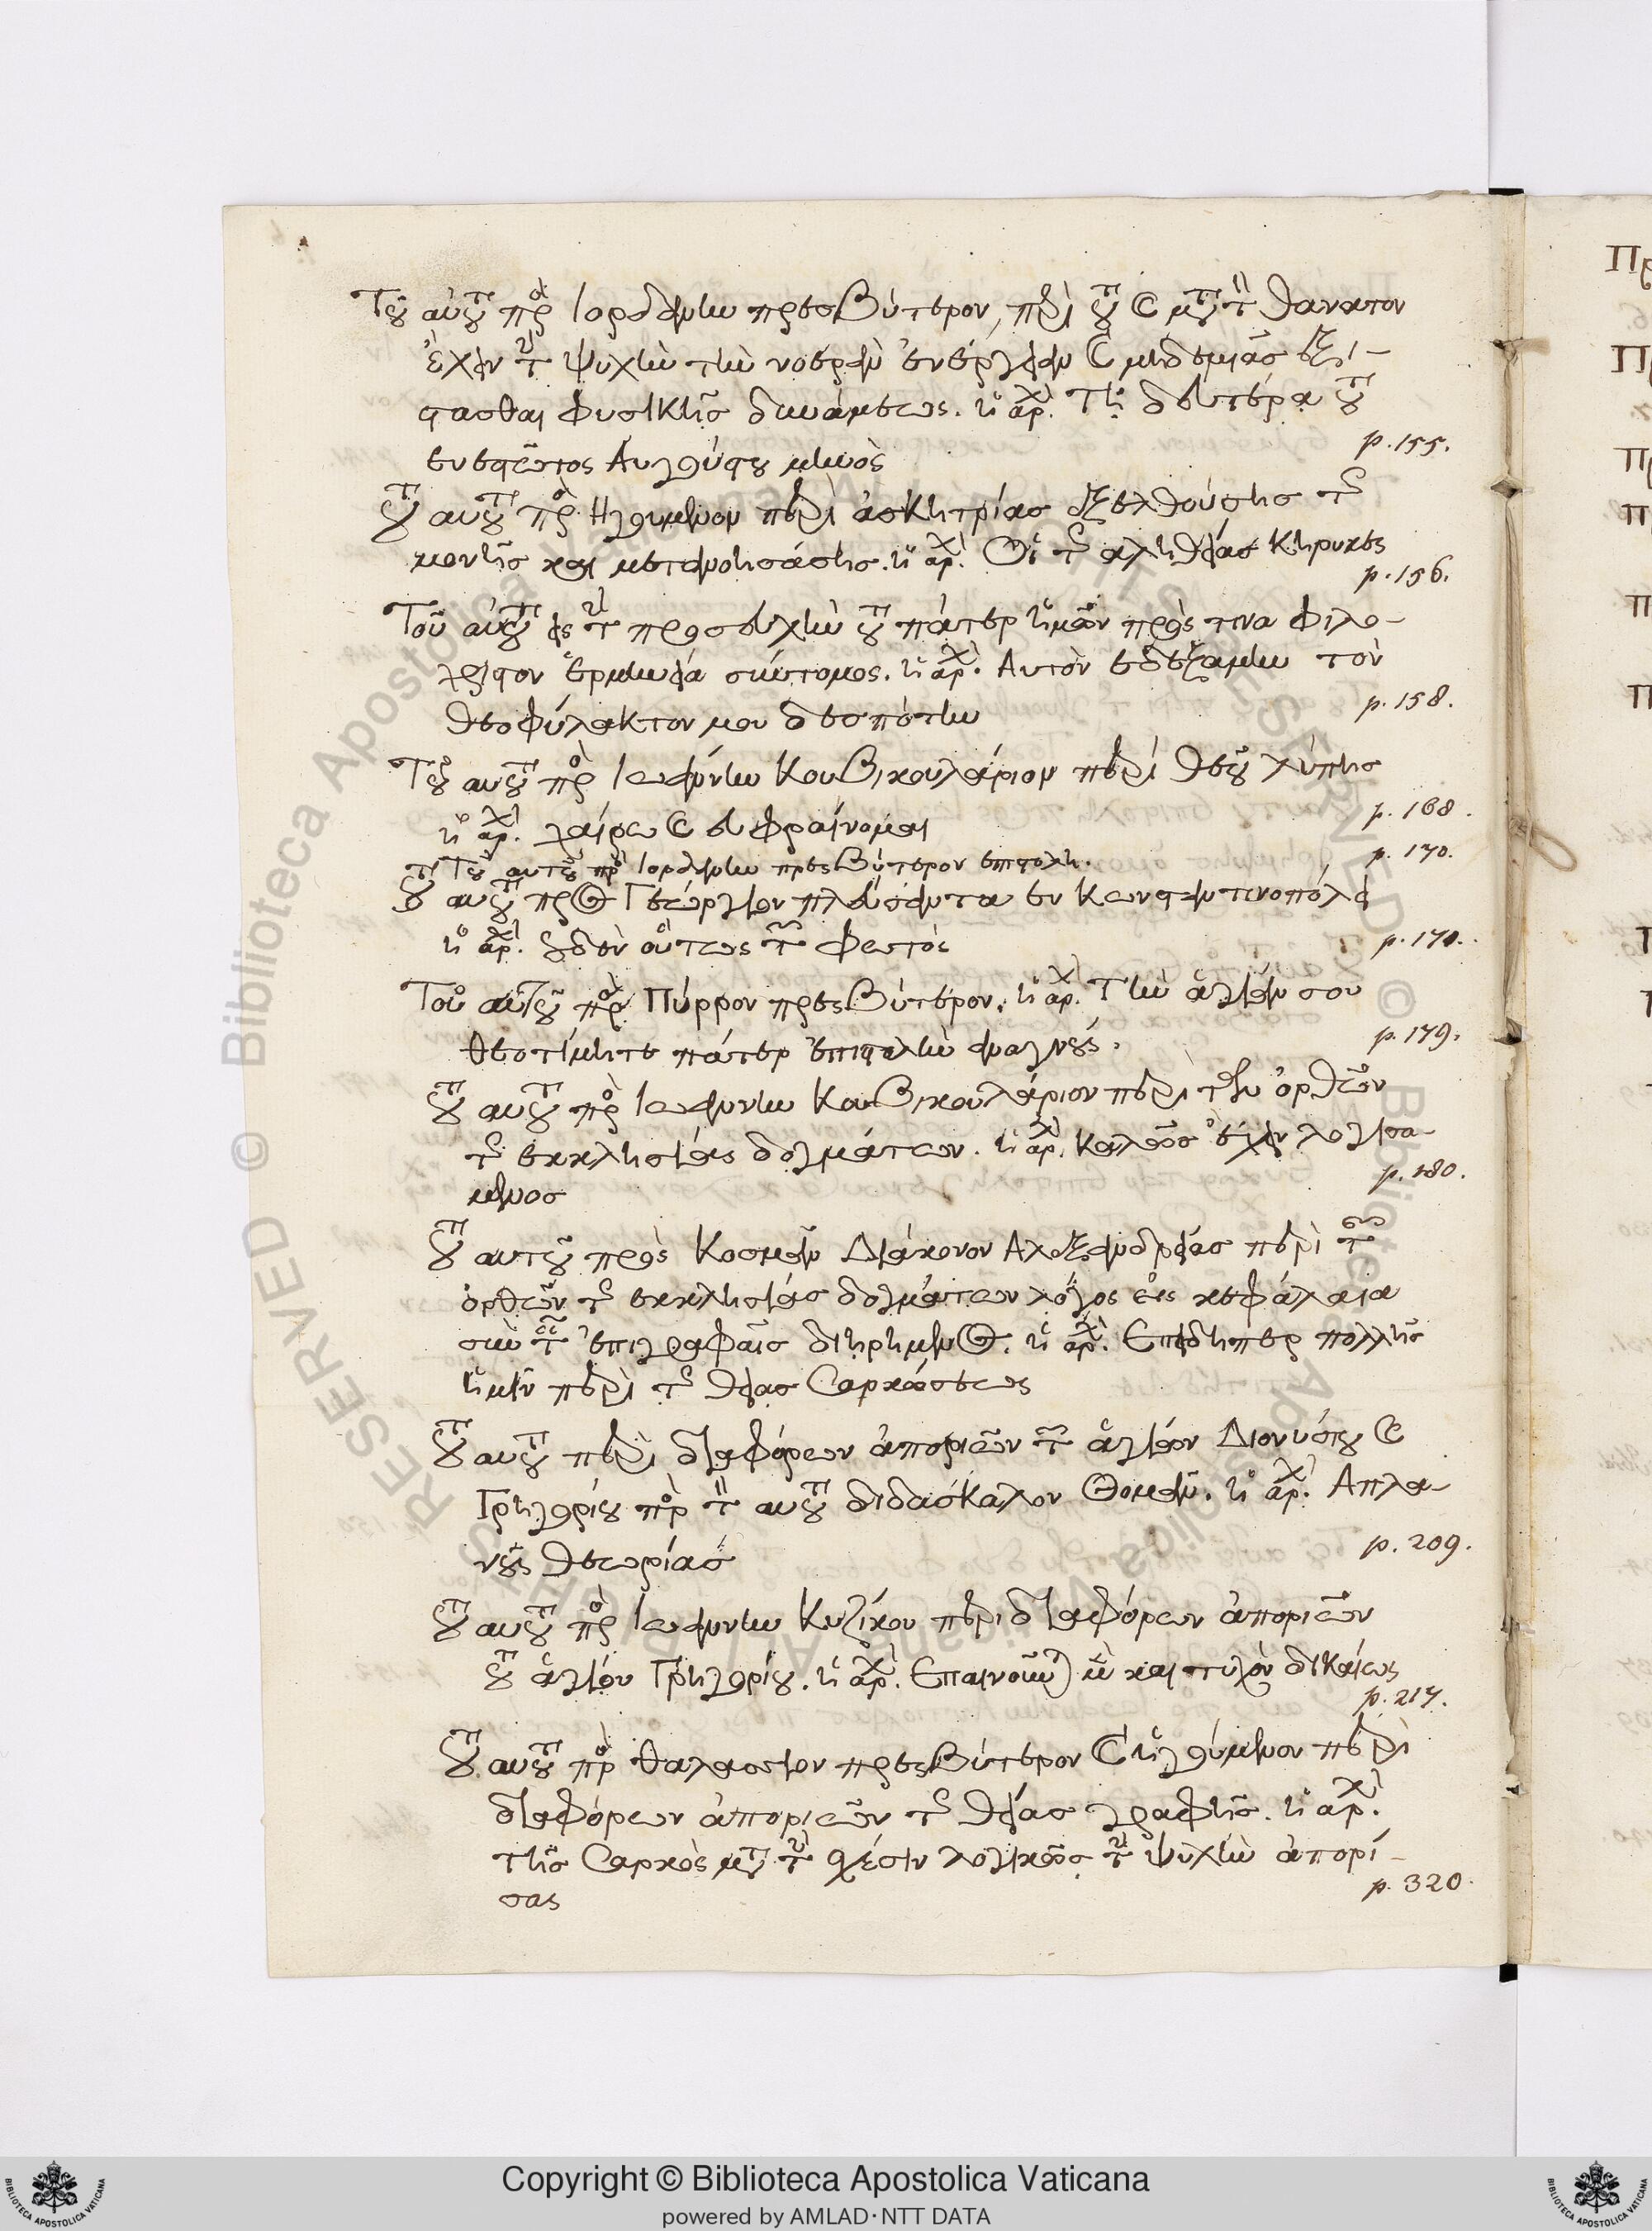 Τοῦ αὐτοῦ πρὸς Ιορδάνην πρεσβύτερον, περὶ τοῦ καὶ μετὰ τὸν θάνατον
ἔχειν τὴν ψυχὴν τὴν νοερὰν ἐνέργειαν καὶ μηδεμιᾶς ἐξί-
στασθαι φυσικῆς δυνάμεως. ἡ ἀρχὴ. Τῇ δευτέρᾳ τοῦ
ενεστῶτος Αυγούστου μηνὸς
p. 155.
Τοῦ αυτοῦ πρὸς Ηγουμένην περὶ ἀσκητρίας ἐξελθούσης τῆς
μονῆς καὶ μετανοησάσης. ἡ ἀρχὴ. Οἱ τῆς αληθείας κήρυκες
p. 156.
Τοῦ αὐτοῦ εἰς τὴν προσευχὴν τοῦ πάτερ ἡμῶν πρὸς τινα φιλο-
χριστον ἑρμηνεία σύντομος. ἡ ἀρχὴ. Αυτὸν εδεξάμην τὸν
θεοφύλακτον μου δεσπότην
p. 158.
Τοῦ αυτοῦ πρὸς Ιωάννην Κουβικουλάριον περὶ θεοῦ λύπης
ἡ ἀρχὴ. χαίρω καὶ ευφραίνομαι
p. 168.
Τοῦ αυτοῦ πρὸς Ιορδάνην πρεσβύτερον επιστολή.
p. 170.
Τοῦ αυτοῦ πρὸς Γεώργιον πλεύσαντα εν Κωνσταντινοπόλει
ἡ ἀρχὴ. οὐδὲν οὕτως τῶν φωτὸς
p. 170.
Τοῦ αὐτοῦ πρὸς Πύρρον πρεσβύτερον. ἡ ἀρχὴ. Τὴν ἁγίαν σου
θεοτίμητε πάτερ ἐπιστολὴν αναγνούς.
p. 179.
Τοῦ αυτοῦ πρὸς Ιωάννην Κουβικουλάριον περὶ τῶν ὀρθῶν
τῆς εκκλησίας δογμάτων. ἡ ἀρχὴ. καλῶς ἔχειν λογισα-
μενος
p. 180.
Τοῦ αυτοῦ πρὸς Κοσμᾶν Διάκονον Αλεξανδρείας περὶ τῶν
ὀρθῶν τῆς εκκλησίας δογμάτων λόγος εἰς κεφάλαια
σὺν ταῖς ἐπιγραφαῖς διῃρημένος. ἡ ἀρχὴ. Επειδήπερ πολλῆς
ἡμῖν περὶ τῆς θείας Σαρκώσεως
Τοῦ αυτοῦ περὶ διαφόρων ἀποριῶν τῶν ἁγίων Διονυσίου καὶ
Γρηγορίου πρὸς τὸν αυτοῦ διδάσκαλον Θωμᾶν. ἡ ἀρχὴ. Απλα-
νοῦς θεωρίας
p. 209.
Τοῦ αυτοῦ πρὸς Ιωάννην Κυζίκου περὶ διαφόρων ἀποριῶν
τοῦ ἁγίου Γρηγορίου. ἡ ἀρχὴ. Επαινοῦνται μὲν καὶ τυχὸν δικαίως
p. 217.
Τοῦ αυτοῦ πρὸς Θαλάσσιον πρεσβύτερον καὶ ἡγούμενον περὶ
διαφόρων ἀποριῶν τῆς θείας γραφῆς. ἡ ἀρχὴ.
τῆς Σαρκὸς κατὰ τὴν σχέσιν λογικῶς τὴν ψυχὴν ἀπορί-
σας
p. 320.
Copyright © Biblioteca Apostolica Vaticana
powered by AMLAD·NTT DATA